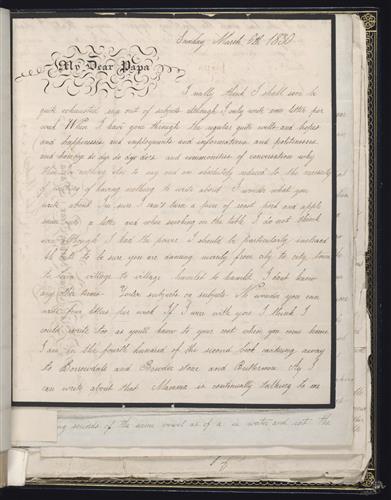 Sunday March 6th 1830
My Dear Papa
I really think I shall soon be
quite exhausted say out of subjects although I only write one letter per
week When I have gone through the regular quite wells and hopes
and happinesses and employments and informations and politenesses
and how d'ye do d'ye do d'ye do's and communities of conversation why
there is nothing else to say and am absolutely reduced to the necessity
of of having nothing to write about I wonder what you
write about I'm sure I can't turn a piece of roast pork and apple
sauce into a letter and when smoking on the table I do not think
even although I had the power I should be particularly inclined
to to to be sure you are dancing merrily from city to city town
to town village to village hamlet to hamlet I dont know
any other terms Under subjects on subjects No wonder you can
write four letters per week If I were with you I think I
could write too as you'll know to your cost when you come home
I am in the fourth hundred of the second book cantering away
to Borrowdale and Bowder stone and Buttermere Ay I
can write about that Mamma is continually talking to me
ng sounds of the same vowel as of a in water and not the